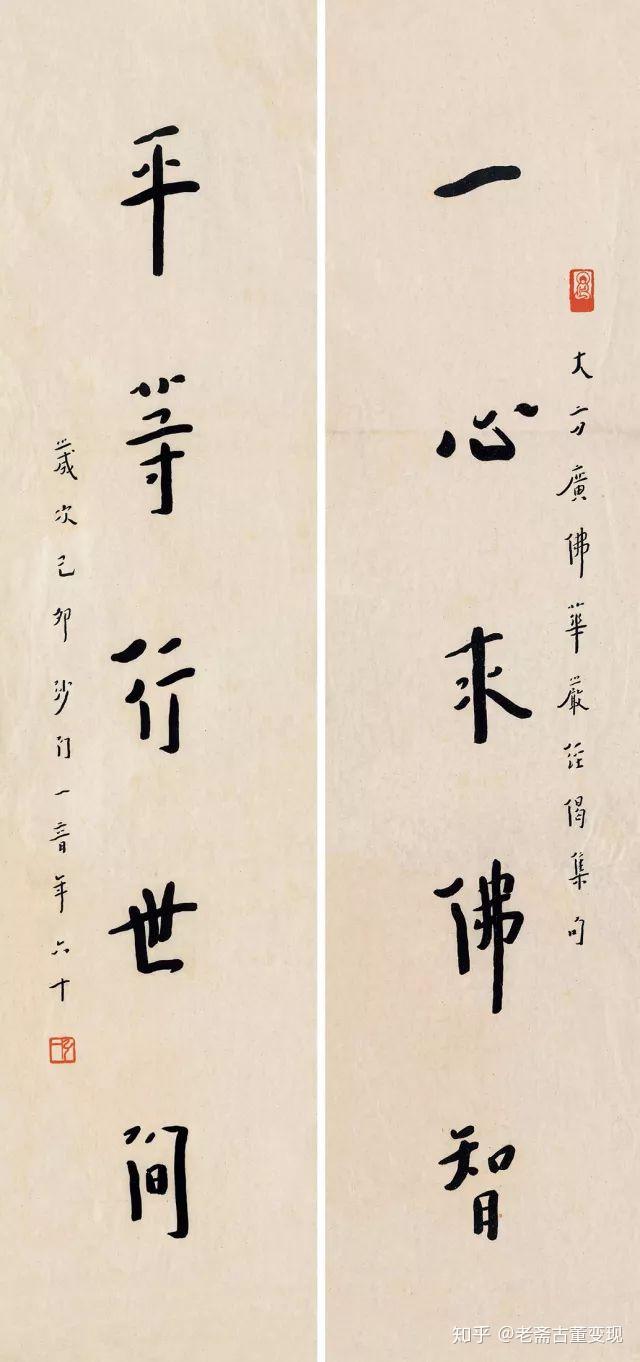 大方廣佛華嚴經偈集句
一心求佛智
平等行世間
歲次己卯沙門一音年六十
弘一
知乎 @老斋古董变现